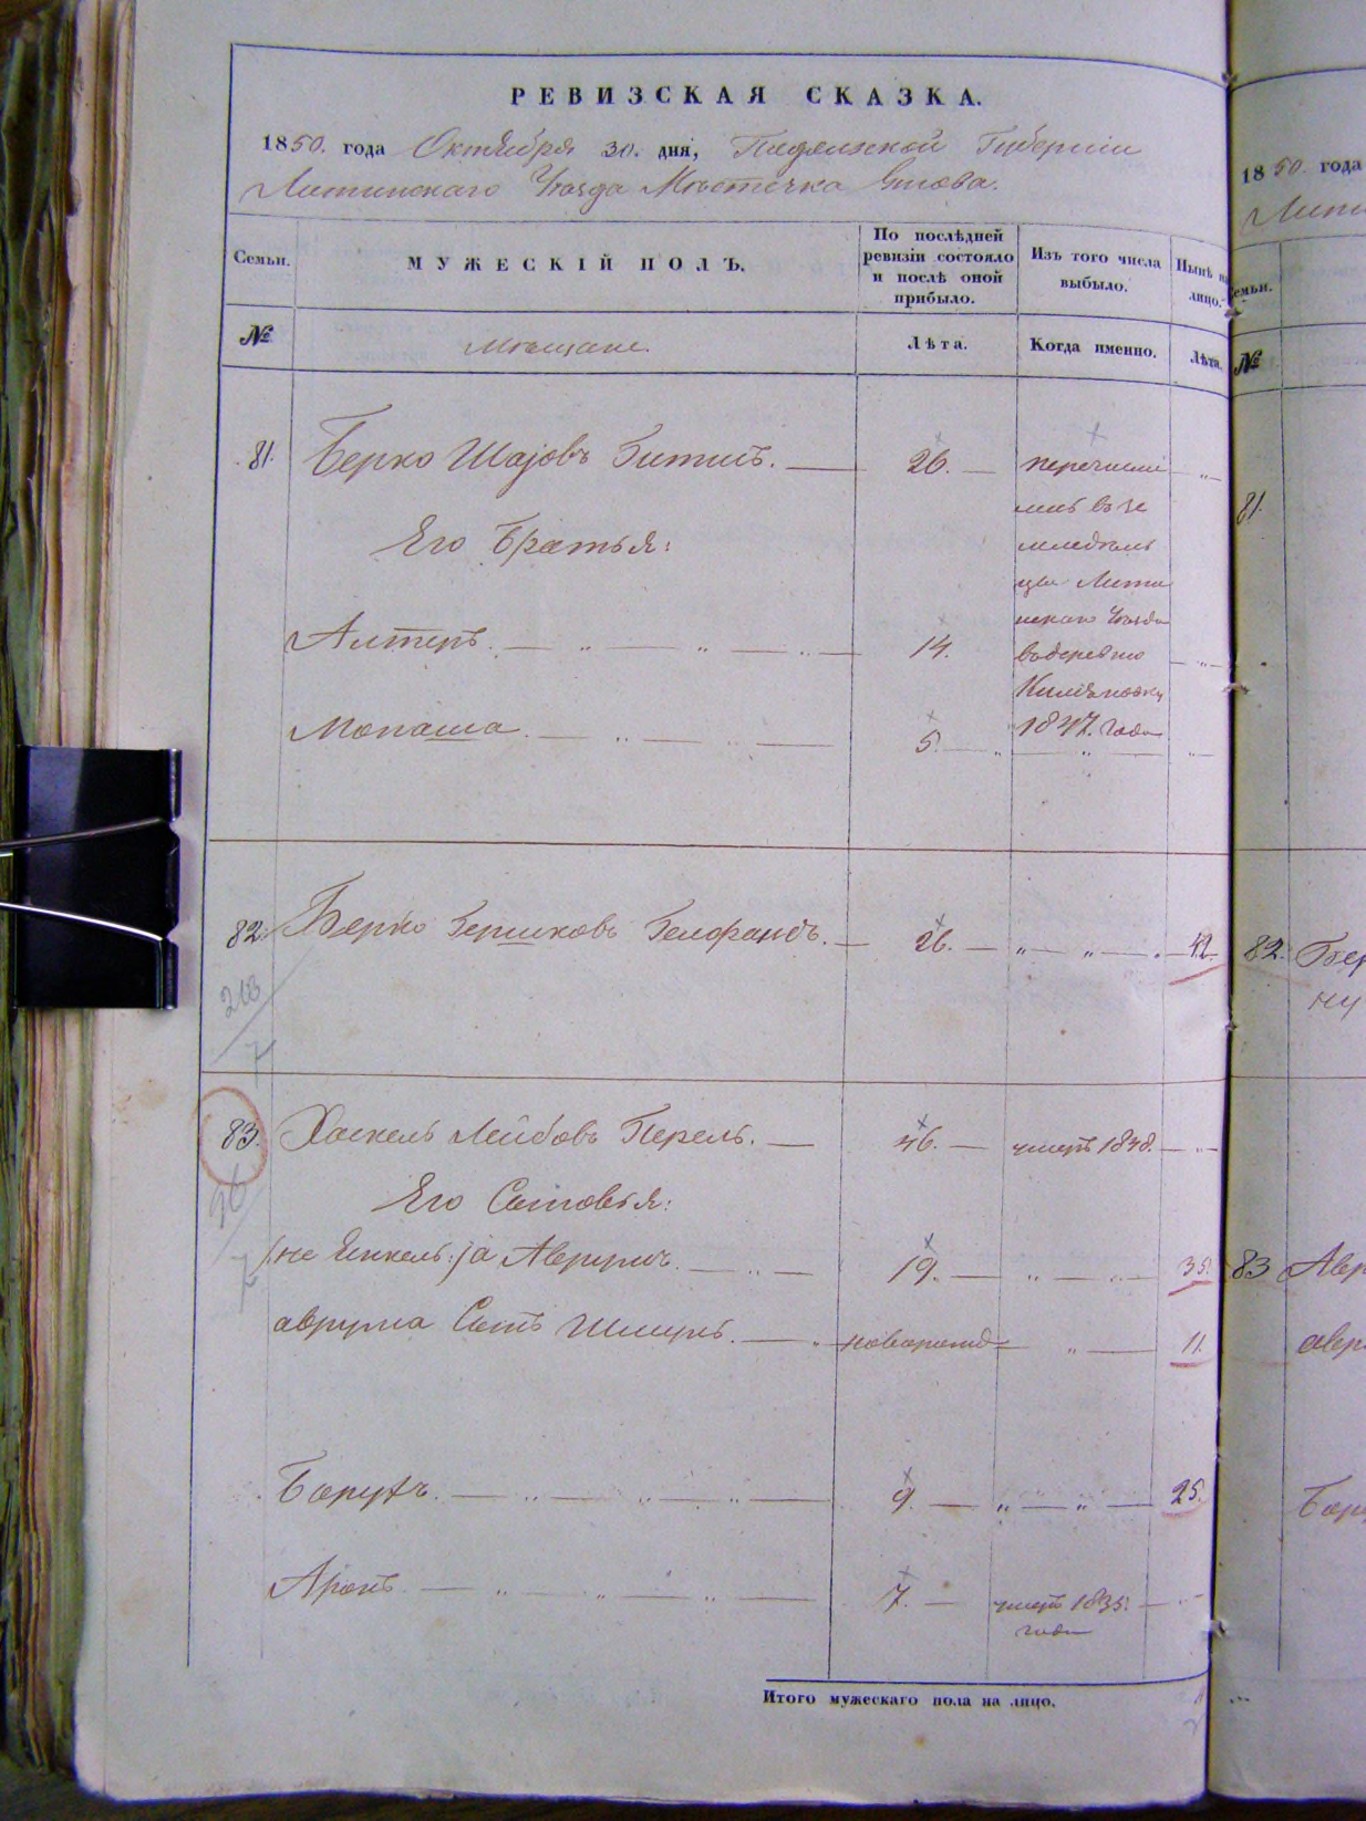 РЕВИЗСКАЯ СКАЗКА.
1850. года Октября 30. дня, Подольской Губернии
Литинскаго Уѣзда Мѣстечка
Семьи.
МУЖЕСКІЙ ПОЛЪ.
По послѣдней ревизіи состояло и послѣ оной прибыло.
Изъ того числа выбыло.
Нынѣ на лицо.
№
Мѣщане.
Лѣта.
Когда именно.
Лѣта.
81. Берко Шаіовъ 26.
перечисле
ны въ зе
мледѣль
цы Лити
нскаго Уѣзда
въ деревню
1847. года
Его Братья:
Алтеръ. 14.
Монаша. 5.
82. Берко Гершковъ Гелфандъ. 26. 42.
213
7
83. Хаскель Лейбовъ Перель. 46. умеръ 1848.
Его Сыновья:
(не Янкель:) а Аврумъ. 19. 35.
аврума Сынъ Шмуль. новорожд 11.
Борухъ. 9. 25.
Аронъ 7. умеръ 1835.
года
Итого мужескаго пола на лицо.
1850. года
Семьи.
№
81.
82. Бер
83 Авр
авр
Бор